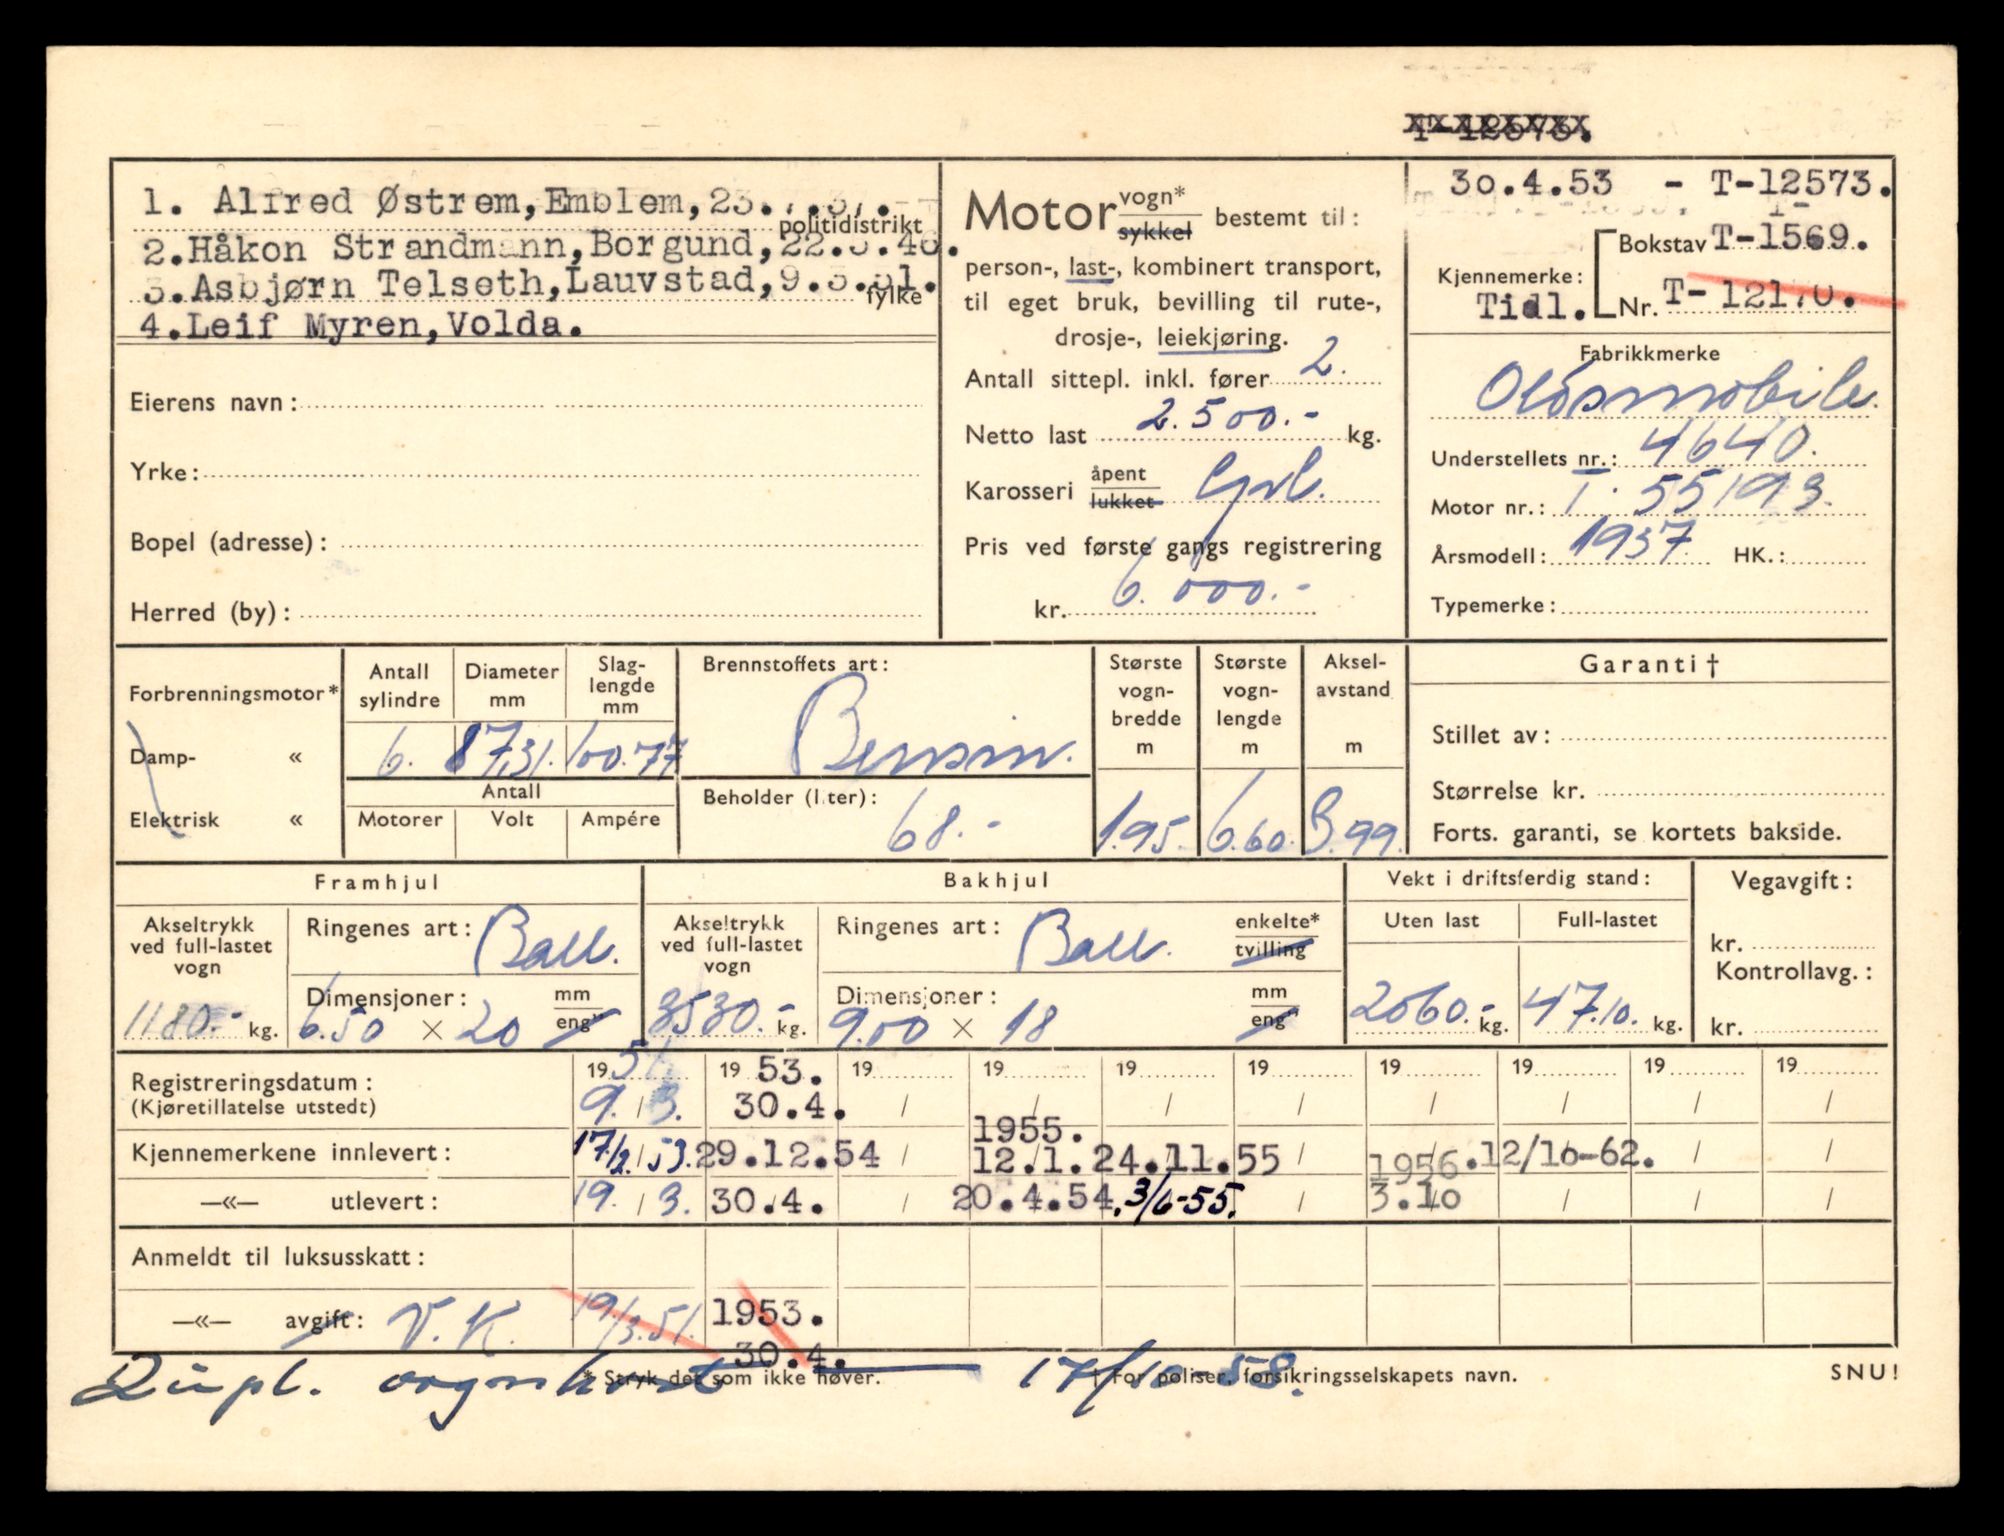 T-12573.
1. Alfred Østrem, Emblem, 23.7.37.
politidistrikt
2.Håkon Strandmann, Borgund, 22.
3.Asbjørn Telseth, Lauvstad, 9.3.51.
fylke
4.Leif Myren, Volda.
Eierens navn:
Yrke:
Bopel (adresse):
Herred (by):
Motor vogn* sykkel bestemt til:
person-, last-, kombinert transport,
til eget bruk, bevilling til rute-,
drosje-, leiekjøring.
Antall sittepl. inkl. fører 2.
Netto last 2.500.- kg.
Karosseri åpent lukket
Pris ved første gangs registrering
kr. 6.000.-
30.4.53 - T-12573.
Bokstav T-1569.
Kjennemerke:
Tidl. Nr. T-12170.
Fabrikkmerke
Oldsmobile.
Understellets nr.: 4640.
Motor nr.: T. 55193.
Årsmodell: 1937. HK.:
Typemerke:
Forbrenningsmotor*
Damp- «
Elektrisk «
Antall sylindre
6.
Diameter mm
87,31.
Slag-lengde mm
100.77
Antall
Motorer Volt Ampére
Brennstoffets art:
Bensin.
Beholder (liter):
68.-
Største vogn-bredde m
1.95.
Største vogn-lengde m
6.60.
Aksel-avstand m
3.99.
Garanti †
Stillet av:
Størrelse kr.
Forts. garanti, se kortets bakside.
Framhjul
Akseltrykk ved full-lastet vogn
1180.- kg.
Ringenes art: Ball.
Dimensjoner: mm eng"
6.50 × 20
Bakhjul
Akseltrykk ved full-lastet vogn
3530.- kg.
Ringenes art: Ball. enkelte* tvilling
Dimensjoner: mm eng"
9.00 × 18
Vekt i driftsferdig stand:
Uten last Full-lastet
2060.- kg. 47.10. kg.
Vegavgift:
kr.
Kontrollavg.:
kr.
Registreringsdatum: 1951. 19 53. 19 19 19 19 19 19 19 19
(Kjøretillatelse utstedt) 9. / 3. 30.4. / / / / / / / /
1955.
Kjennemerkene innlevert: 17/2 53. 29.12.54 / 12.1. 24.11.55 / 1956. 12/10-62.
—«— utlevert: 19. / 3. 30.4. / 20.4.54. 3/6-55. / 3.10 / / /
Anmeldt til luksusskatt:
—«— avgift: V.K. 19/3.51. 1953.
30.4.
Dupl. vognkort 17/10-58.
* Stryk det som ikke høver. † For poliser, forsikringsselskapets navn. SNU!